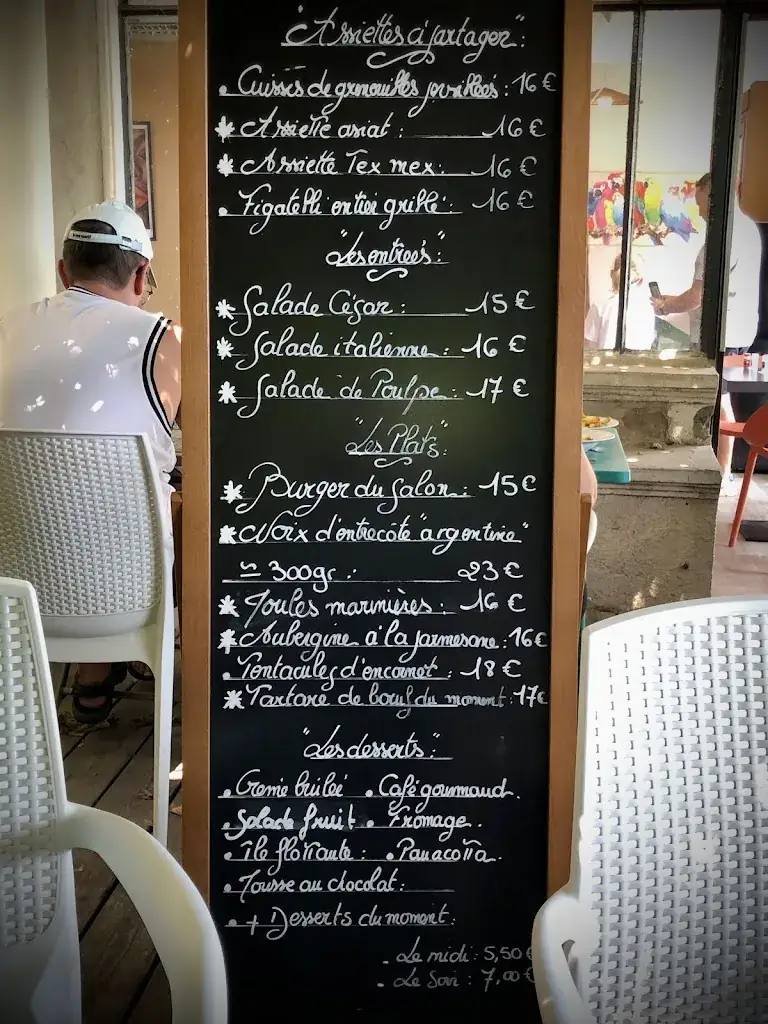 "Assiettes à partager":
. Cuisses de grenouilles persillées : 16 €
* Assiette asiat : 16 €
* Assiette Tex mex : 16 €
. Figatelli entier grillé : 16 €
"Les entrées":
* Salade César : 15 €
* Salade italienne : 16 €
* Salade de Poulpe : 17 €
"Les Plats":
* Burger du Salon : 15 €
* Noix d'entrecôte "argentine"
≃ 300gr : 23 €
* Moules marinières : 16 €
* Aubergine à la parmesane : 16 €
. Tentacules d'encornet : 18 €
* Tartare de boeuf du moment : 17 €
"Les desserts":
. Creme brulée . Café gourmand.
. Salade fruit . Fromage.
. île flottante : . Panacotta.
. Mousse au chocolat :
. + Desserts du moment :
. Le midi : 5,50 €
. Le Soir : 7,00 €